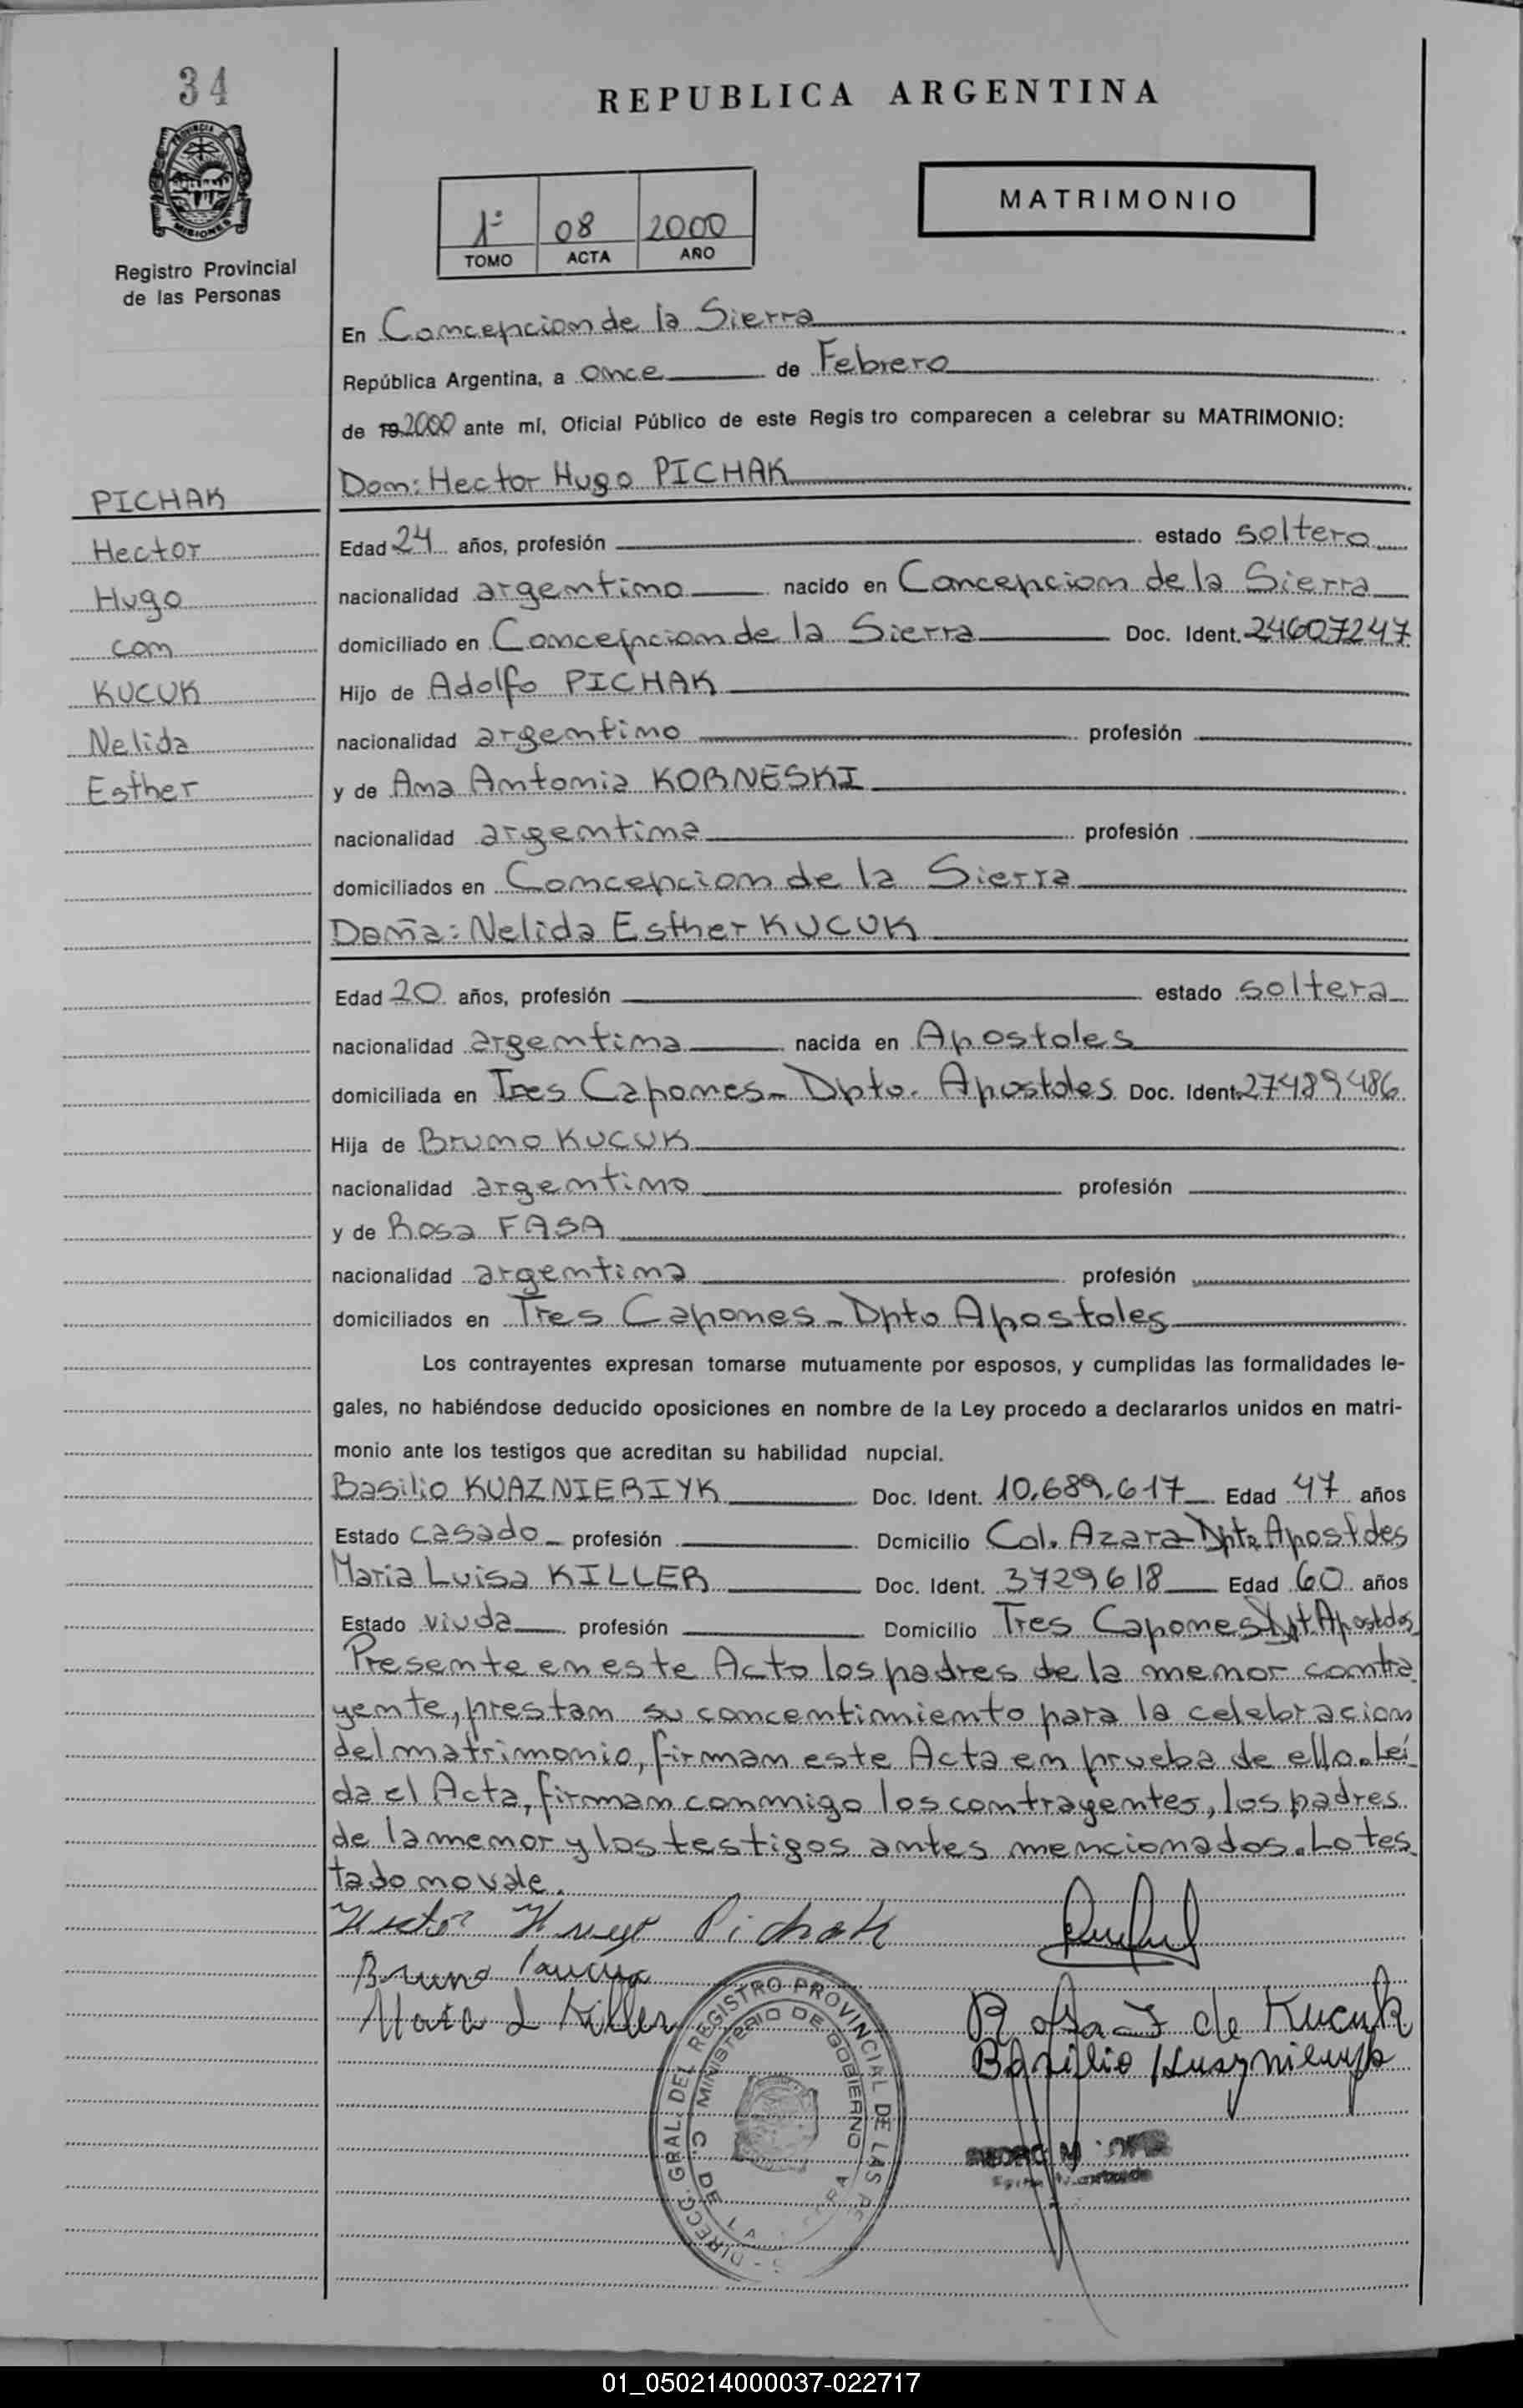 34
REPUBLICA ARGENTINA
MISIONES
Registro Provincial
de las Personas
1º 08 2000
TOMO ACTA AÑO
MATRIMONIO
En Concepcion de la Sierra
República Argentina, a once de Febrero
de 19 2000 ante mí, Oficial Público de este Regis tro comparecen a celebrar su MATRIMONIO:
Don: Hector Hugo PICHAK
PICHAK
Hector
Hugo
con
KUCUK
Nelida
Esther
Edad 24 años, profesión estado soltero
nacionalidad argentino nacido en Concepcion de la Sierra
domiciliado en Concepcion de la Sierra Doc. Ident. 24607247
Hijo de Adolfo PICHAK
nacionalidad argentino profesión
y de Ana Antonia KORNESKI
nacionalidad argentina profesión
domiciliados en Concepcion de la Sierra
Doña: Nelida Esther KUCUK
Edad 20 años, profesión estado soltera
nacionalidad argentina nacida en Apostoles
domiciliada en Tres Capones - Dpto. Apostoles Doc. Ident. 27489486
Hija de Bruno KUCUK
nacionalidad argentino profesión
y de Rosa FASA
nacionalidad argentina profesión
domiciliados en Tres Capones - Dpto Apostoles
Los contrayentes expresan tomarse mutuamente por esposos, y cumplidas las formalidades le-
gales, no habiéndose deducido oposiciones en nombre de la Ley procedo a declararlos unidos en matri-
monio ante los testigos que acreditan su habilidad nupcial.
Basilio KUAZNIERIYK Doc. Ident. 10.689.617 Edad 47 años
Estado casado profesión Domicilio Col. Azara - Dpto Apostoles
Maria Luisa KILLER Doc. Ident. 3729618 Edad 60 años
Estado viuda profesión Domicilio Tres Capones Dpt Apostoles
Presente en este Acto los padres de la menor contra
yente, prestan su concentimiento para la celebracion
del matrimonio, firman este Acta en prueba de ello. Leí
da el Acta, firman conmigo los contrayentes, los padres
de la menor y los testigos antes mencionados. Lo tes
tado no vale.
Hector Hugo Pichak
Bruno
Maria L Killer
Rosa F de Kucuk
Basilio
DIRECC. GRAL. DEL REGISTRO PROVINCIAL DE LAS
MINISTERIO DE GOBIERNO
C. DE LA
01_050214000037-022717